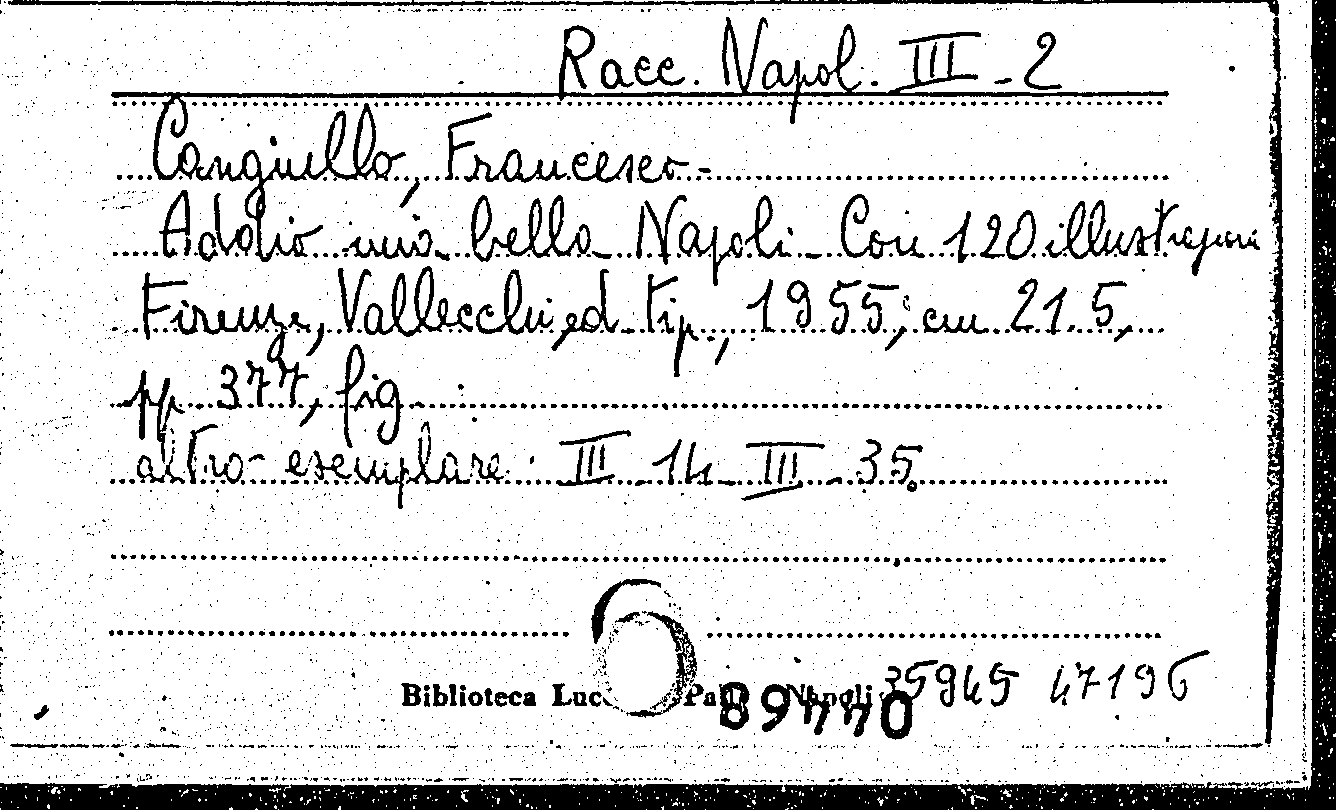 Racc. Napol. III - 2
Cangiullo, Francesco -
Addio mia bella Napoli - Con 120 illustrazioni
Firenze, Vallecchi, ed. tip., 1955, cm 21.5,
pp. 377, fig.
altro esemplare: III - 14 - III - 35.
Biblioteca Luc Pa Napoli 35945 47196